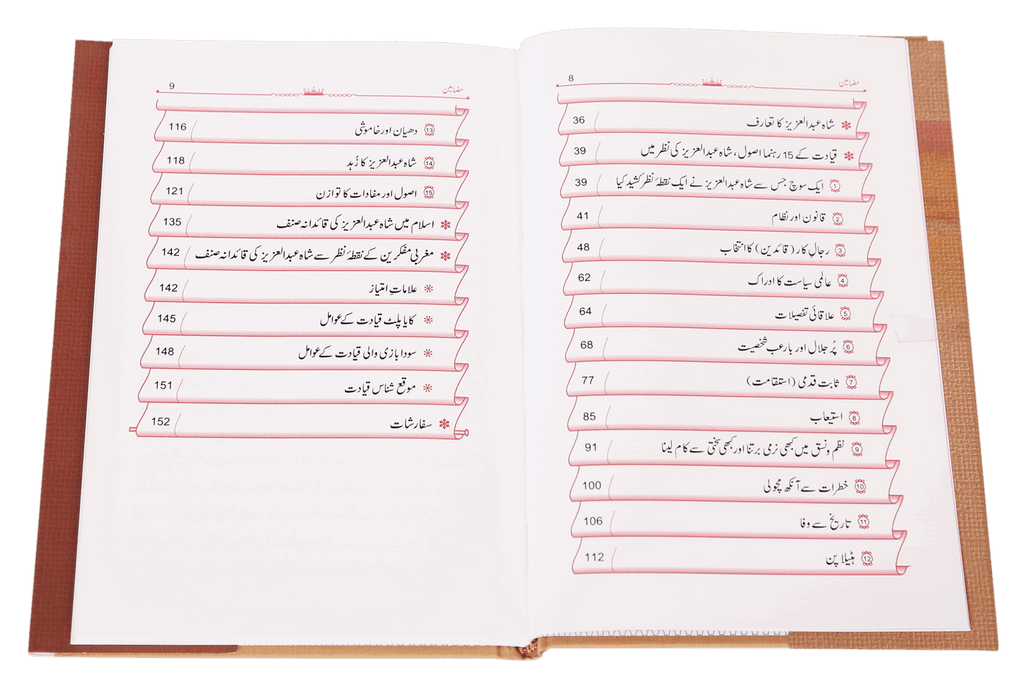 8 مضامین
شاہ عبدالعزیز کا تعارف 36
قیادت کے 15 رہنما اصول، شاہ عبدالعزیز کی نظر میں 39
1 ایک سوچ جس سے شاہ عبدالعزیز نے ایک نقطۂ نظر کشید کیا 39
2 قانون اور نظام 41
3 رجالِ کار (قائدین) کا انتخاب 48
4 عالمی سیاست کا ادراک 62
5 علاقائی تفصیلات 64
6 پُر جلال اور بارعب شخصیت 68
7 ثابت قدمی (استقامت) 77
8 استیعاب 85
9 نظم ونسق میں کبھی نرمی برتنا اور کبھی سختی سے کام لینا 91
10 خطرات سے آنکھ مچولی 100
11 تاریخ سے وفا 106
12 ہٹیلا پن 112
9 مضامین
13 دھیان اور خاموشی 116
14 شاہ عبدالعزیز کا زُہد 118
15 اصول اور مفادات کا توازن 121
اسلام میں شاہ عبدالعزیز کی قائدانہ صنف 135
مغربی مفکرین کے نقطۂ نظر سے شاہ عبدالعزیز کی قائدانہ صنف 142
علاماتِ امتیاز 142
کایا پلٹ قیادت کے عوامل 145
سودا بازی والی قیادت کے عوامل 148
موقع شناس قیادت 151
سفارشات 152